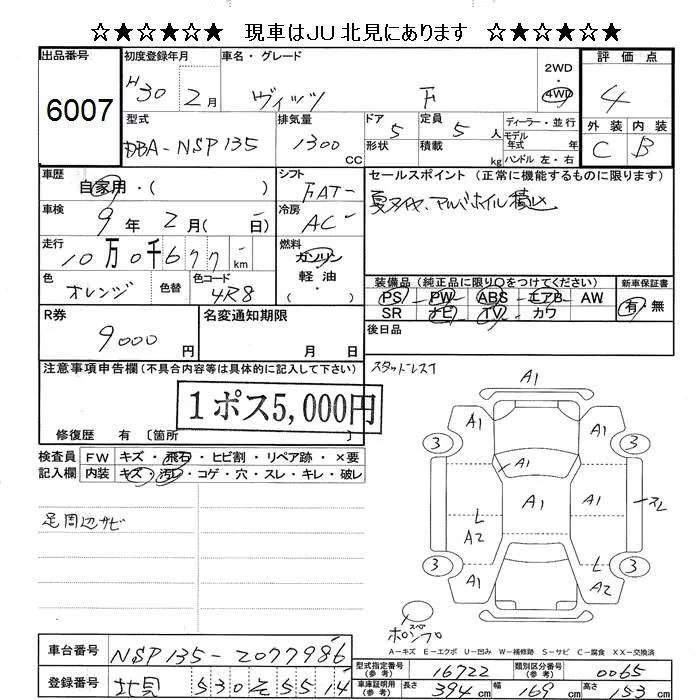 ☆★☆★☆★ 現車はJU北見にあります ☆★☆★☆★
出品番号
6007
初度登録年月
H30 2月
車名・グレード
ヴィッツ F
2WD
・
4WD
評価点
4
外装 内装
C B
型式
DBA-NSP135
排気量
1300 CC
ドア 5
形状
定員 5 人
積載 kg
ディーラー・並行
モデル年式 年
ハンドル 左・右
車歴
自家用・( )
シフト
FAT
セールスポイント (正常に機能するものに限ります)
夏タイヤ、アルミホイル積込
車検
9年 2月( 日)
冷房
AC
走行
10万0千677 km
燃料
ガソリン
軽油
( )
色
オレンジ
色替
色コード
4R8
装備品 (純正品に限り○をつけてください)
PS PW ABS エアB AW
SR ナビ TV カワ
新車保証書
有・無
R券
9000 円
名変通知期限
月 日
後日品
注意事項申告欄(不具合内容等は具体的に記入して下さい)
スタッドレス1
1ポス5,000円
修復歴 有 〔箇所
検査員
記入欄
FW キズ・飛石・ヒビ割・リペア跡・×要
内装 キズ・汚レ・コゲ・穴・スレ・キレ・破レ
足周辺サビ
A1
A1 A1
3 3
A1
A1 A1 スレ
L
A2
L
3 3
A1 A2
スペ
ボロシプロ
A－キズ E－エクボ U－凹み W－補修跡 S－サビ C－腐食 XX－交換済
車台番号
NSP135-2077986
登録番号
北見 530 そ 5514
型式指定番号
(参考)
16722
類別区分番号
(参考)
0065
車庫証明用
(参考)
長さ 394 cm
幅 169 cm
高さ 153 cm